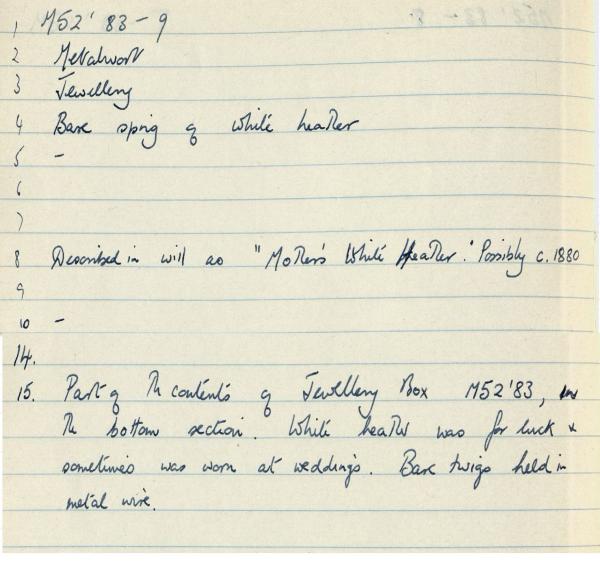 1 M52'83-9
2 Metalwork
3 Jewellery
4 Bare sprig of white heather
5 -
6
7
8 Described in will as "Mother's White Heather." Possibly c.1880
9
10 -
14.
15. Part of the contents of Jewellery Box M52'83, in
the bottom section. White heather was for luck &
sometimes was worn at weddings. Bare twigs held in
metal wire.